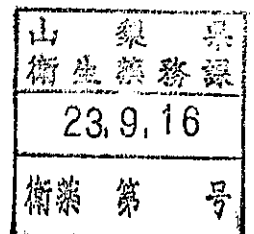 山梨県
衛生薬務課
23.9.16
衛薬 第 号